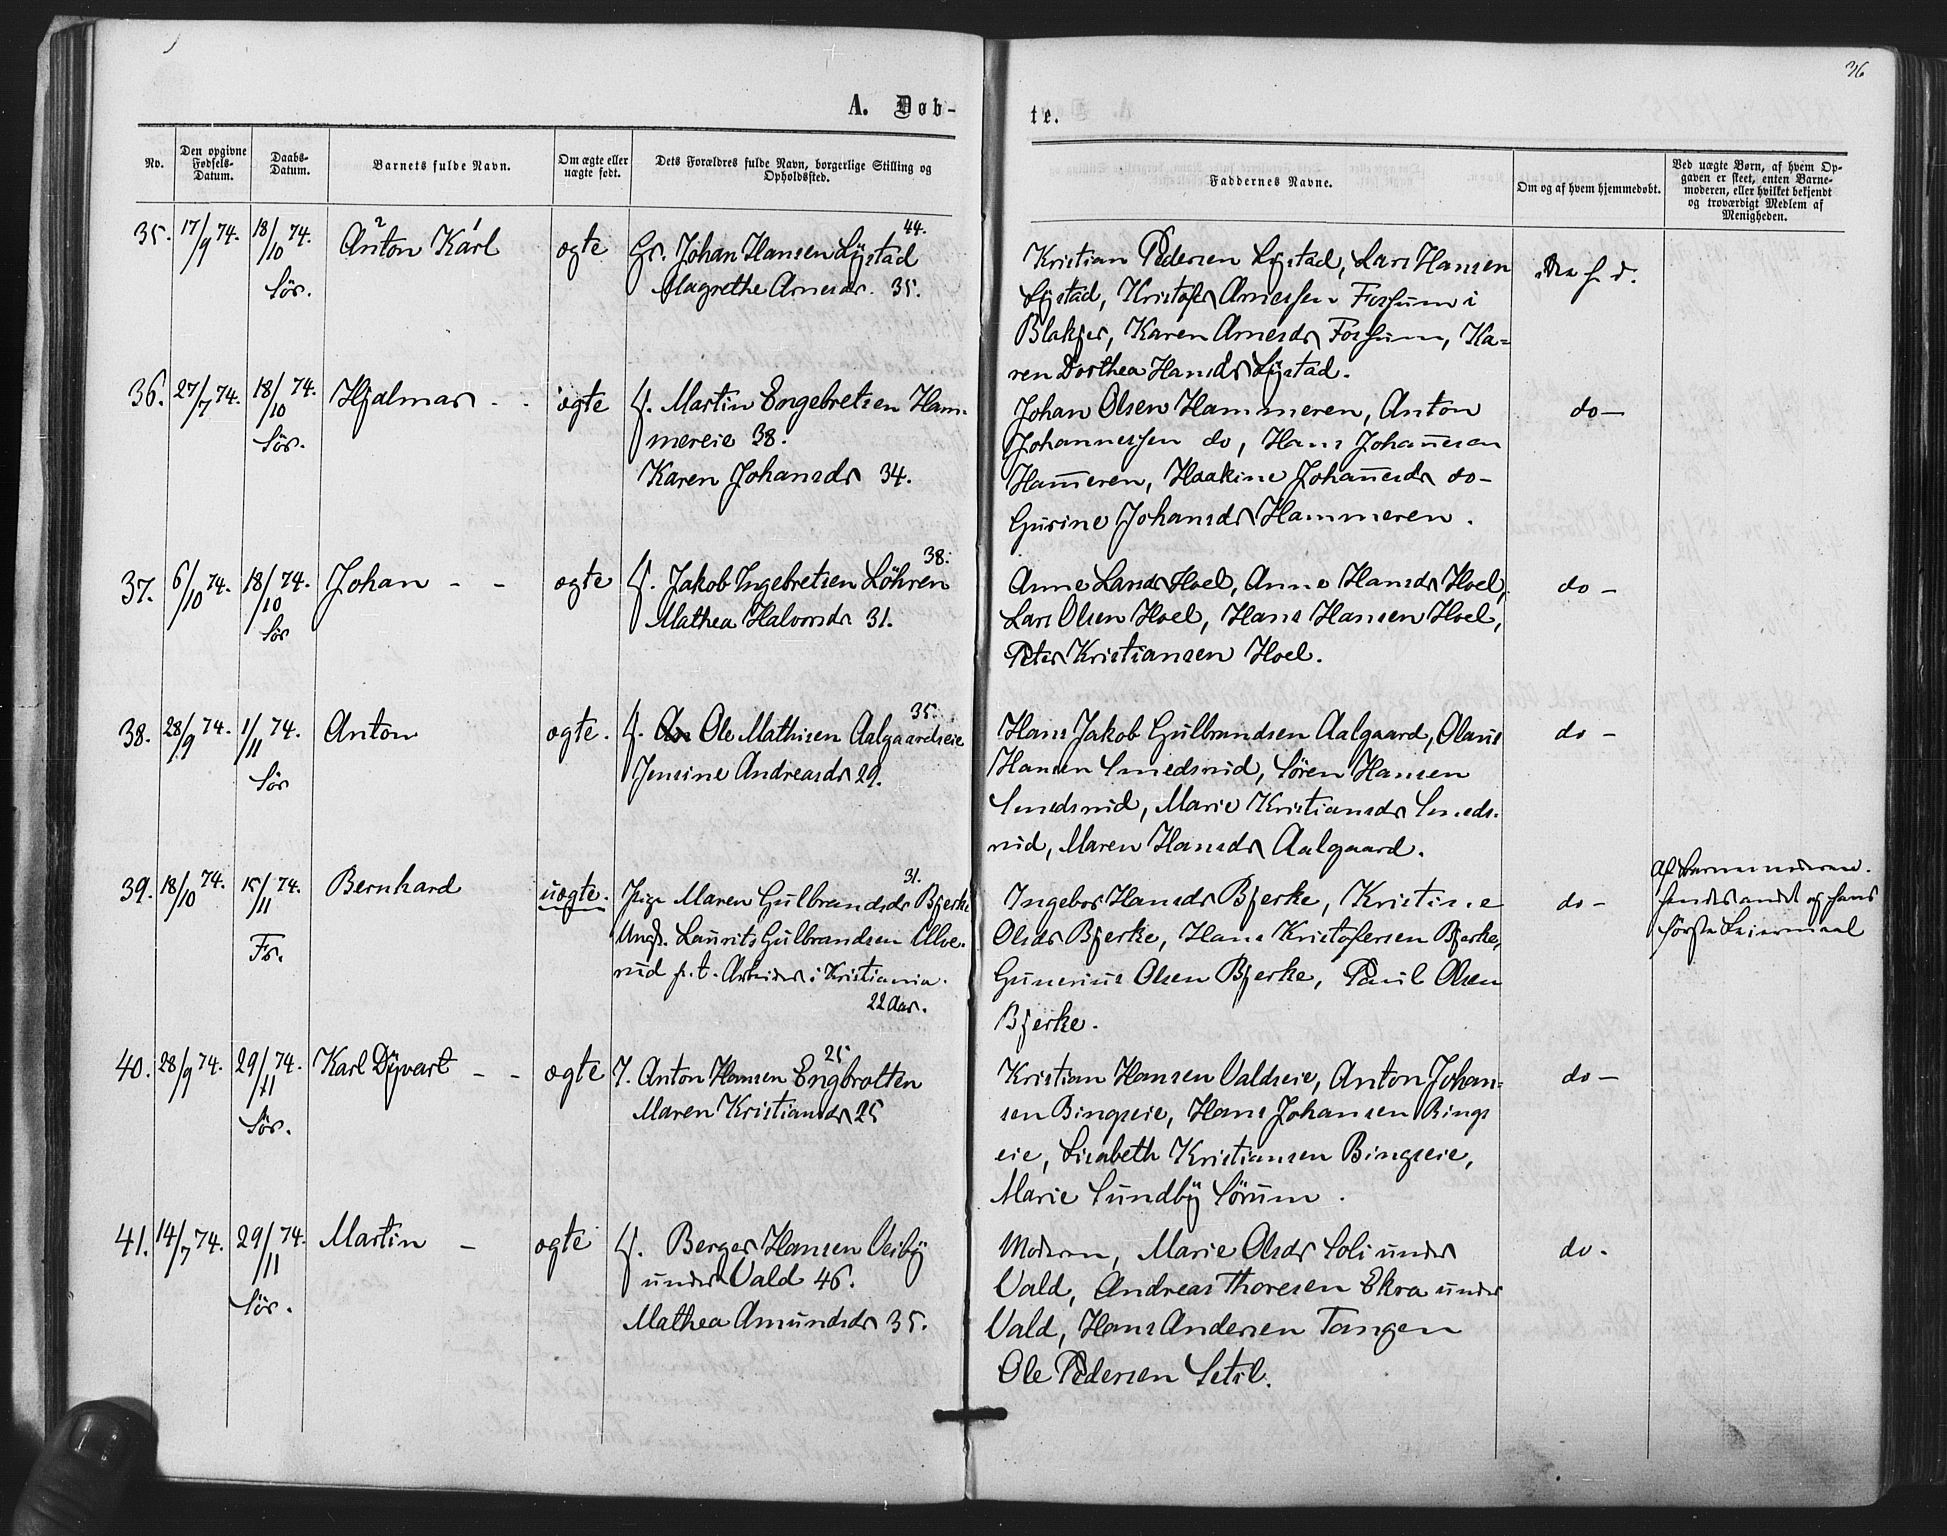 36
A. Døb-
te.
No.
Den opgivne
Fødsels-
Datum.
Daabs-
Datum.
Barnets fulde Navn.
Om ægte eller
uægte født.
Dets Forældres fulde Navn, borgerlige Stilling og
Opholdssted.
Faddernes Navne.
Om og af hvem hjemmedøbt.
Ved uægte Børn, af hvem Op-
gaven er skeet, enten Barne-
moderen, eller hvilket bekjendt
og troværdigt Medlem af
Menigheden.
35. 17/9 74. 18/10 74. Sør.
2 1
Anton Karl
ægte
44.
Gr. Johan Hansen Lystad
Magrethe Arnesdr. 35.
Kristian Pedersen Lystad, Lars Hansen
Lystad, Kristofer Arnessen Forsum i
Blakjer, Karen Arnesdr Forsum, Ka-
ren Dorthea Hansdr Lystad.
36. 27/7 74. 18/10 74. Sør.
Hjalmar - -
ægte
Martin Engebretsen Ham-
mereie 38.
Karen Johansdr 34.
Johan Olsen Hammeren, Anton
Johannessen do, Hans Johanesen
Hameren, Haakine Johanesdr do-
Gurine Johansdr Hammeren.
do-
37. 6/10 74. 18/10 74. Sør
Johan - -
ægte
38.
Jakob Ingebretsen Löhren
Mathea Halvorsdr 31.
Anne Larsdr Hoel, Anne Hansdr Hoel,
Lars Olsen Hoel, Hans Hansen Hoel,
Peter Kristiansen Hoel.
do -
38. 28/9 74. 1/11 74. Sør
Anton
ægte.
35.
Ole Mathisen Aalgaardseie
Jensine Andreasdr 29.
Hans Jakob Gulbrandsen Aalgaard, Olaus
Hansen Smedsrud, Sören Hansen
Smedsrud, Marie Kristiansdr Smeds-
rud, Maren Hansdr Aalgaard.
do -
39. 18/10 74. 15/11 74. Fr.
Bernhard
uægte.
31.
Pige Maren Gulbrandsdr Bjerke
Ungk. Laurits Gulbrandsen Ulve-
rud p.t. Arbeider i Kristiania.
22 Aar.
Ingebor Hansdr Bjerke, Kristine
Olsdr Bjerke, Hans Kristofersen Bjerke,
Gunerius Olsen Bjerke, Paul Olsen
Bjerke.
do -
Af Barnemoderen.
hendes andet og hans
første Leiermaal
40. 28/9 74. 29/11 74. Sør.
Karl Dyvart - -
ægte
25
Anton Hansen Engbrotten
Maren Kristiansdr 25
Kristian Hansen Valdseie, Anton Johan-
sen Bingseie, Hans Johansen Bings
eie, Lisabeth Kristiansen Bingseie,
Marie Sundby Sörum.
do -
41. 14/7 74. 29/11 74. Sør.
Martin -
ægte
Berger Hansen Veiby
under Vald 46.
Mathea Amundsdr 35.
Moderen, Marie Olsdr Soli under
Vald, Andreas Thoresen Ekra under
Vald, Hans Andersen Tangen
Ole Pedersen
do -